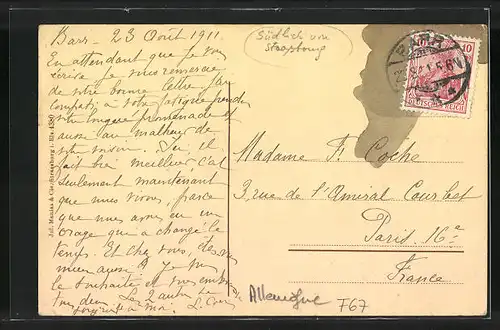 Barr - 23 Août 1911.
En attendant que je vous
écrive je vous remercie
de votre bonne lettre. J'ai
compati à votre fatigue pendant
votre longue promenade et
aussi au malheur de
votre Ici, il
fait bien meilleur c'est
seulement maintenant
que nous vivons, parce
que nous avons eu un
orage qui a changé le
temps. Et chez vous,
mieux aussi? Je
le souhaite et vous embrasse
tous deux.
Südlich von
Strassburg
BARR
10 10
DEUTSCHES REICH
Madame F. Coche
3 rue de l'Amiral Courbet
Paris. 16e
France
Allemagne
F67
Jul. Manias & Cie., Strassburg i. Els. 4380